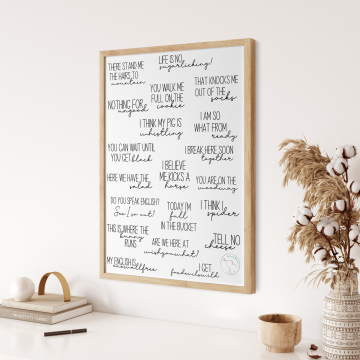 THERE STAND ME
THE HAIRS TO
mountain
LIFE IS NO
sugarlicking!
YOU WALK ME
FULL ON THE
cookie
THAT KNOCKS ME
OUT OF THE
socks
NOTHING FOR
ungood
I THINK MY PIG IS
whistling
I AM SO
WHAT FROM
ready
YOU CAN WAIT UNTIL
YOU GET black
I BREAK HERE SOON
together
I BELIEVE
ME KICKS A
horse
HERE WE HAVE THE
salad
YOU ARE ON THE
woodway
DO YOU SPEAK ENGLISH?
TODAY I'M
full
IN THE BUCKET
I THINK I
spider
THIS IS WHERE THE
bunny
RUNS
ARE WE HERE AT
wishyouwhat?
TELL NO
cheese
MY ENGLISH IS
onewallfree
I GET
foxdevilswild